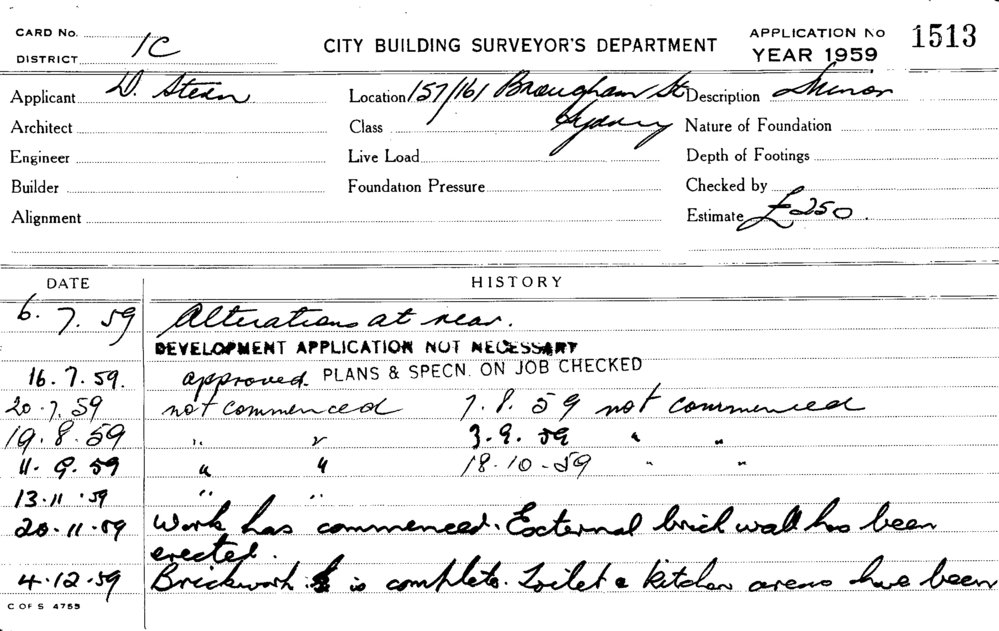 CARD No.
DISTRICT 1C
CITY BUILDING SURVEYOR'S DEPARTMENT
APPLICATION No 1513
YEAR 1959
Applicant D. Stern Location 157/161 Brougham St Description Minor
Architect Class Sydney Nature of Foundation
Engineer Live Load Depth of Footings
Builder Foundation Pressure Checked by
Alignment Estimate £250.
DATE HISTORY
6.7.59 Alterations at rear.
DEVELOPMENT APPLICATION NOT NECESSARY
16.7.59. approved. PLANS & SPECN. ON JOB CHECKED
20.7.59 not commenced 7.8.59 not commenced
19.8.59 " " 3.9.59 " "
11.9.59 " " 18.10-59 " "
13.11.59 " "
20.11.59 Work has commenced. External brick wall has been
erected.
4.12.59 Brickwork is complete. Toilet & kitchen areas have been
C OF S 4755